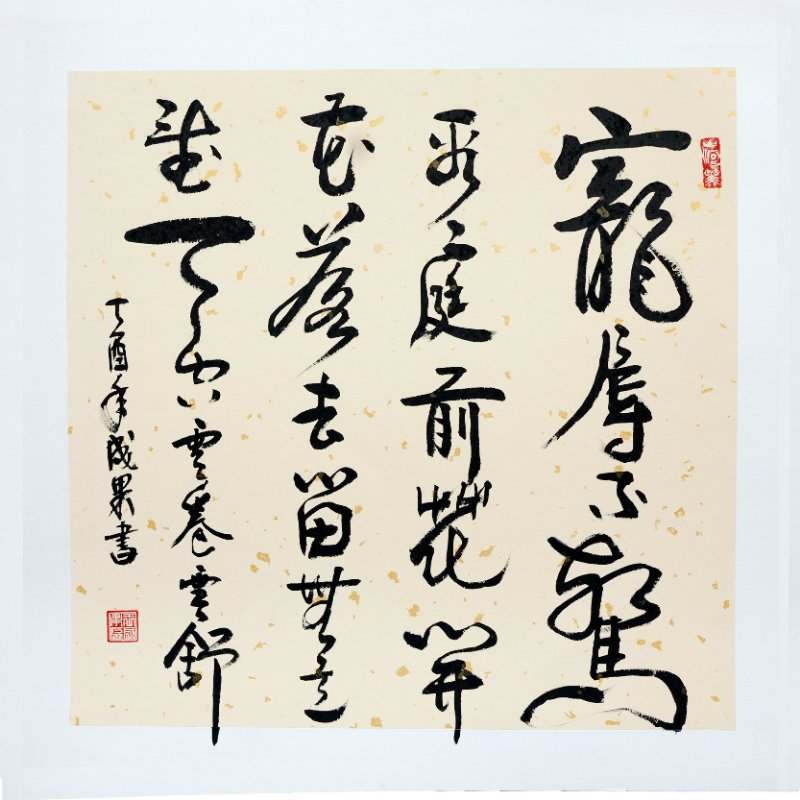 寵辱不驚
看庭前花開
花落去留無意
望天空雲卷雲舒
丁酉年成果書